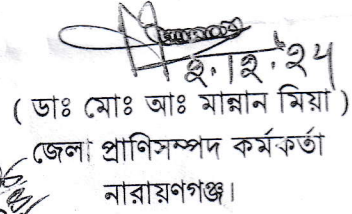 ২.১২.২৪
( ডাঃ মোঃ আঃ মান্নান মিয়া )
জেলা প্রাণিসম্পদ কর্মকর্তা
নারায়ণগঞ্জ।